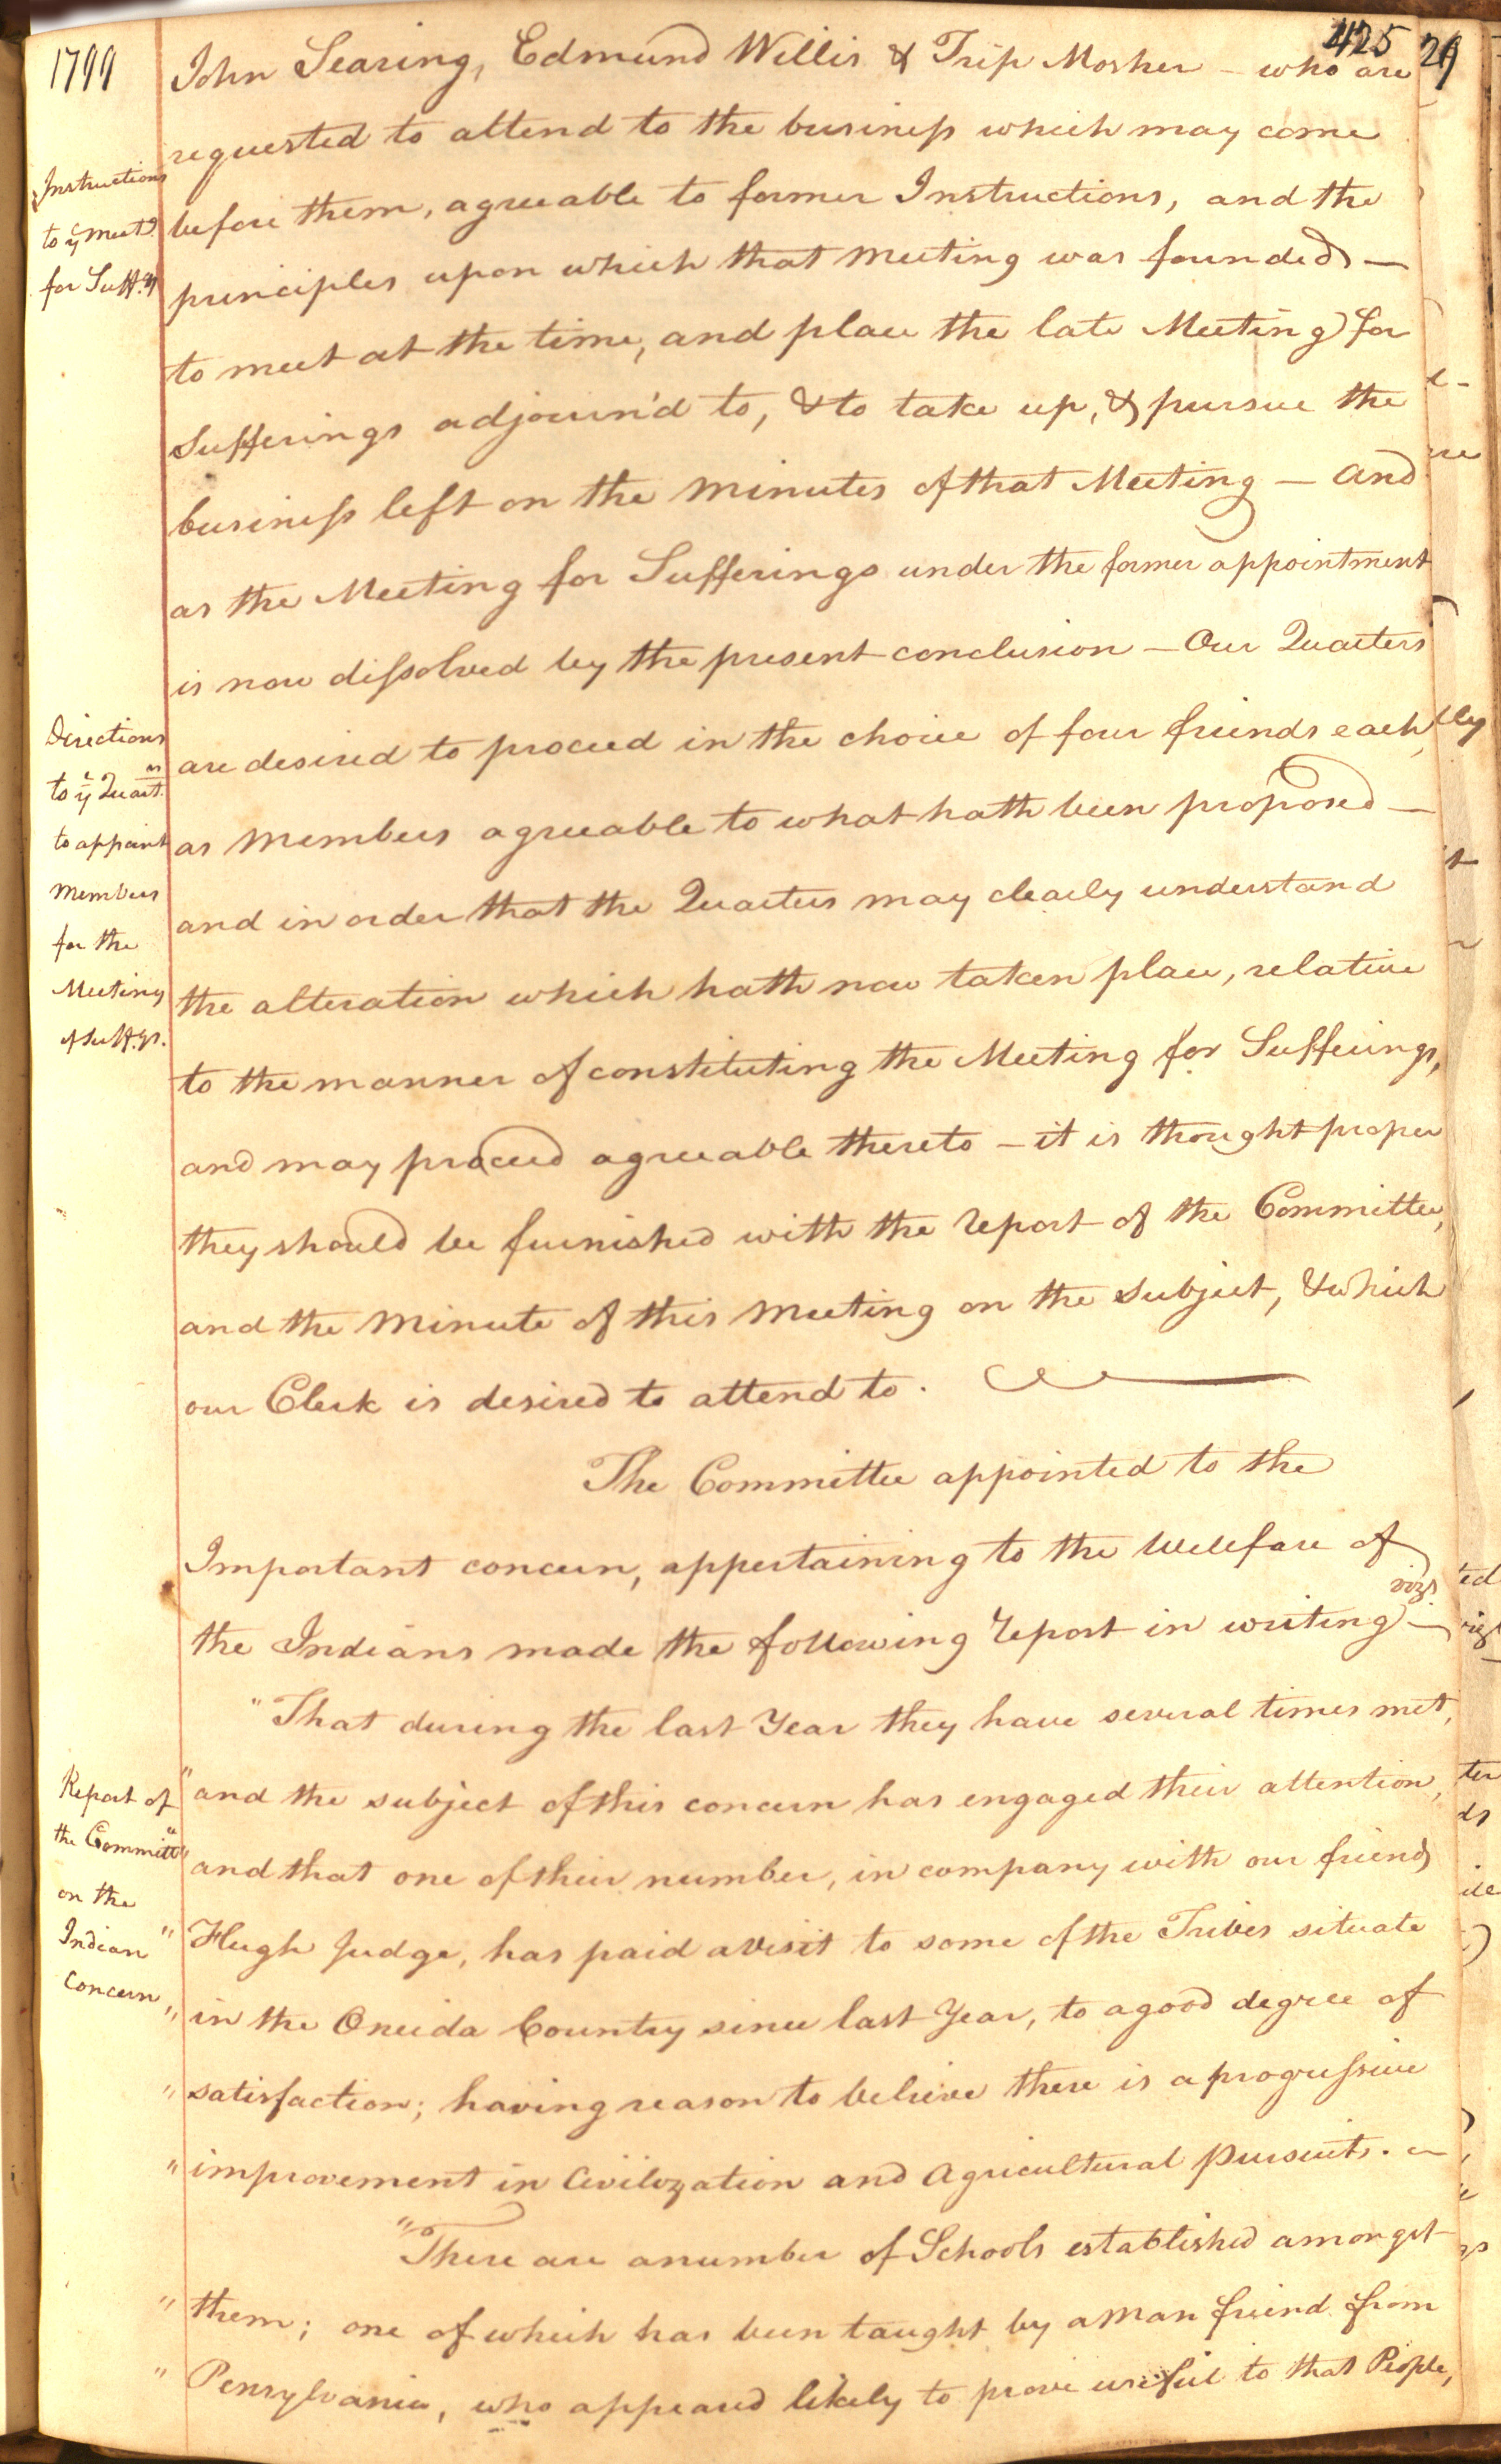 1799
425
29
John Searing, Edmund Willis & Trip Mosher – who are
requested to attend to the businefs which may come
Instructions
to yͤ meetᵍ
for Suffᵍˢ
before them, agreeable to former Instructions, and the
principles upon which that meeting was founded –
to meet at the time, and place the late Meeting for
Sufferings adjourn'd to, & to take up, & pursue the
businefs left on the minutes of that Meeting – and
as the Meeting for Sufferings under the former appointment
is now difsolved by the present conclusion – Our Quarters
Directions
to yͤ Quartʳˢ
to appoint
members
for the
Meeting
of Suff.gs.
are desired to proceed in the choice of four friends each,
as members agreeable to what hath been proposed –
and in order that the Quarters may clearly understand
the alteration which hath now taken place, relative
to the manner of constituting the Meeting for Sufferings,
and may proceed agreeable thereto – it is thought proper
they should be furnished with the report of the Committee,
and the minute of this meeting on the subject, & which
our Clerk is desired to attend to.
The Committee appointed to the
Important concern, appertaining to the Wellfare of
the Indians made the following report in writing – vizt
"That during the last Year they have several times met,
Report of
the Committee
on the
Indian
Concern
" and the subject of this concern has engaged their attention,
" and that one of their number, in company with our friend
" Hugh Judge, has paid a visit to some of the Tribes situate
" in the Oneida Country since last Year, to a good degree of
" satisfaction; having reason to believe there is a progrefsive
" improvement in Civilization and Agricultural pursuits. –
"There are a number of Schools established amongst
" them; one of which has been taught by a man friend from
" Pensylvania, who appeared likely to prove useful to that People,